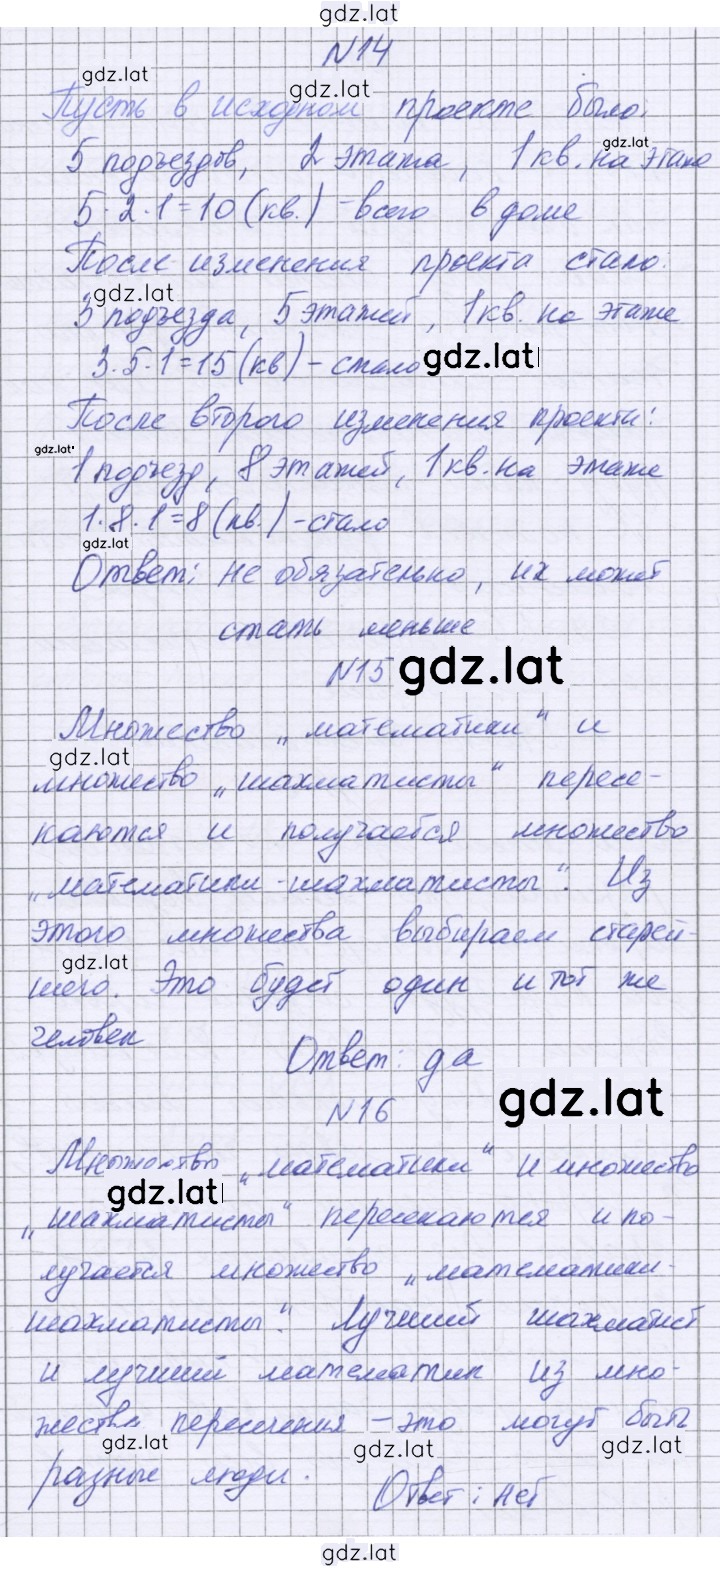 gdz.lat
N14
gdz.lat
gdz.lat
Пусть в исходном проекте было:
gdz.lat
5 подъездов, 2 этажа, 1 кв. на этаже
5·2·1=10 (кв.) - всего в доме
После изменения проекта стало:
gdz.lat
3 подъезда, 5 этажей, 1 кв. на этаже
3·5·1=15 (кв) - стало
gdz.lat
После второго изменения проекта:
gdz.lat
1 подъезд, 8 этажей, 1 кв. на этаже
1·8·1=8 (кв.) - стало
gdz.lat
Ответ: не обязательно, их может
стать меньше
N15
gdz.lat
Множество „математики“ и
gdz.lat
множество „шахматисты“ пересе-
каются и получается множество
„математики-шахматисты“. Из
этого множества выбираем старей-
gdz.lat
шего. Это будет один и тот же
человек
Ответ: да
N16
gdz.lat
Множество „математики“ и множество
gdz.lat
„шахматисты“ пересекаются и по-
лучается множество „математики-
шахматисты“. Лучший шахматист
и лучший математик из мно-
жества пересечения - это могут быть
gdz.lat
gdz.lat
gdz.lat
разные люди.
Ответ: нет
gdz.lat